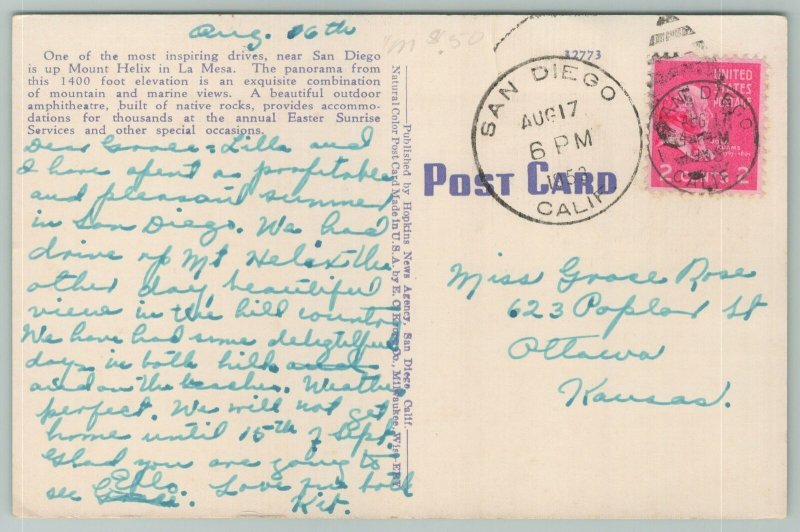 Aug. 16th
"m $.50
32773
One of the most inspiring drives, near San Diego
is up Mount Helix in La Mesa. The panorama from
this 1400 foot elevation is an exquisite combination
of mountain and marine views. A beautiful outdoor
amphitheatre, built of native rocks, provides accommo-
dations for thousands at the annual Easter Sunrise
Services and other special occasions.
Dear Grace - Lilla and
I have spent a profitable
and pleasant summer
in San Diego. We had
drive up Mt Helix the
other day, beautiful
view in the hill country
We have had some delightful
days in both hills and
and on the beaches. Weather
perfect. We will not get
home until 15th of Sept.
Glad you are going to
see Ello. Love you both
Kit.
Published by Hopkins News Agency, San Diego, Calif.
Natural Color Post Card Made in U. S. A. by E. C. Kropp Co., Milwaukee, Wis.
POST CARD
SAN DIEGO
AUG 17
6 PM
CALIF.
UNITED
STATES
POSTAGE
ADAMS
2 CENTS 2
Miss Grace Rose
623 Poplar St
Ottawa
Kansas.